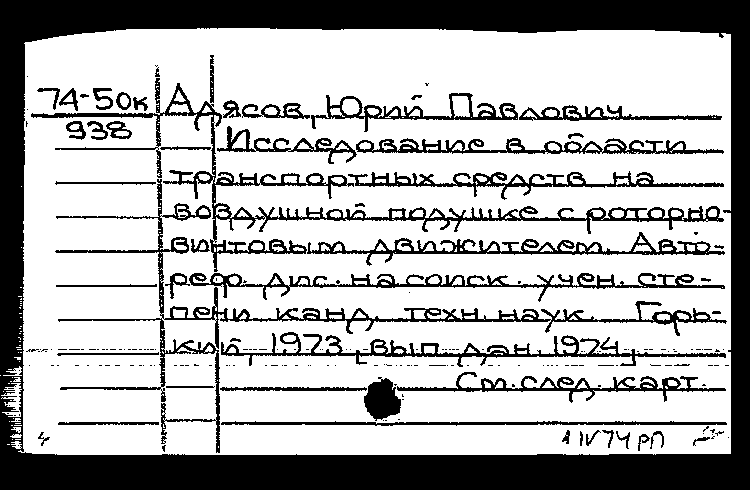 74-50к Адясов, Юрий Павлович
938
Исследование в области
транспортных средств на
воздушной подушке с роторно-
винтовым движителем. Авто-
реф. дис. на соиск. учен. сте-
пени канд. техн. наук. Горь-
кий, 1973, [вып. дан. 1974].
См. след. карт.
4
1 IV 74 РП